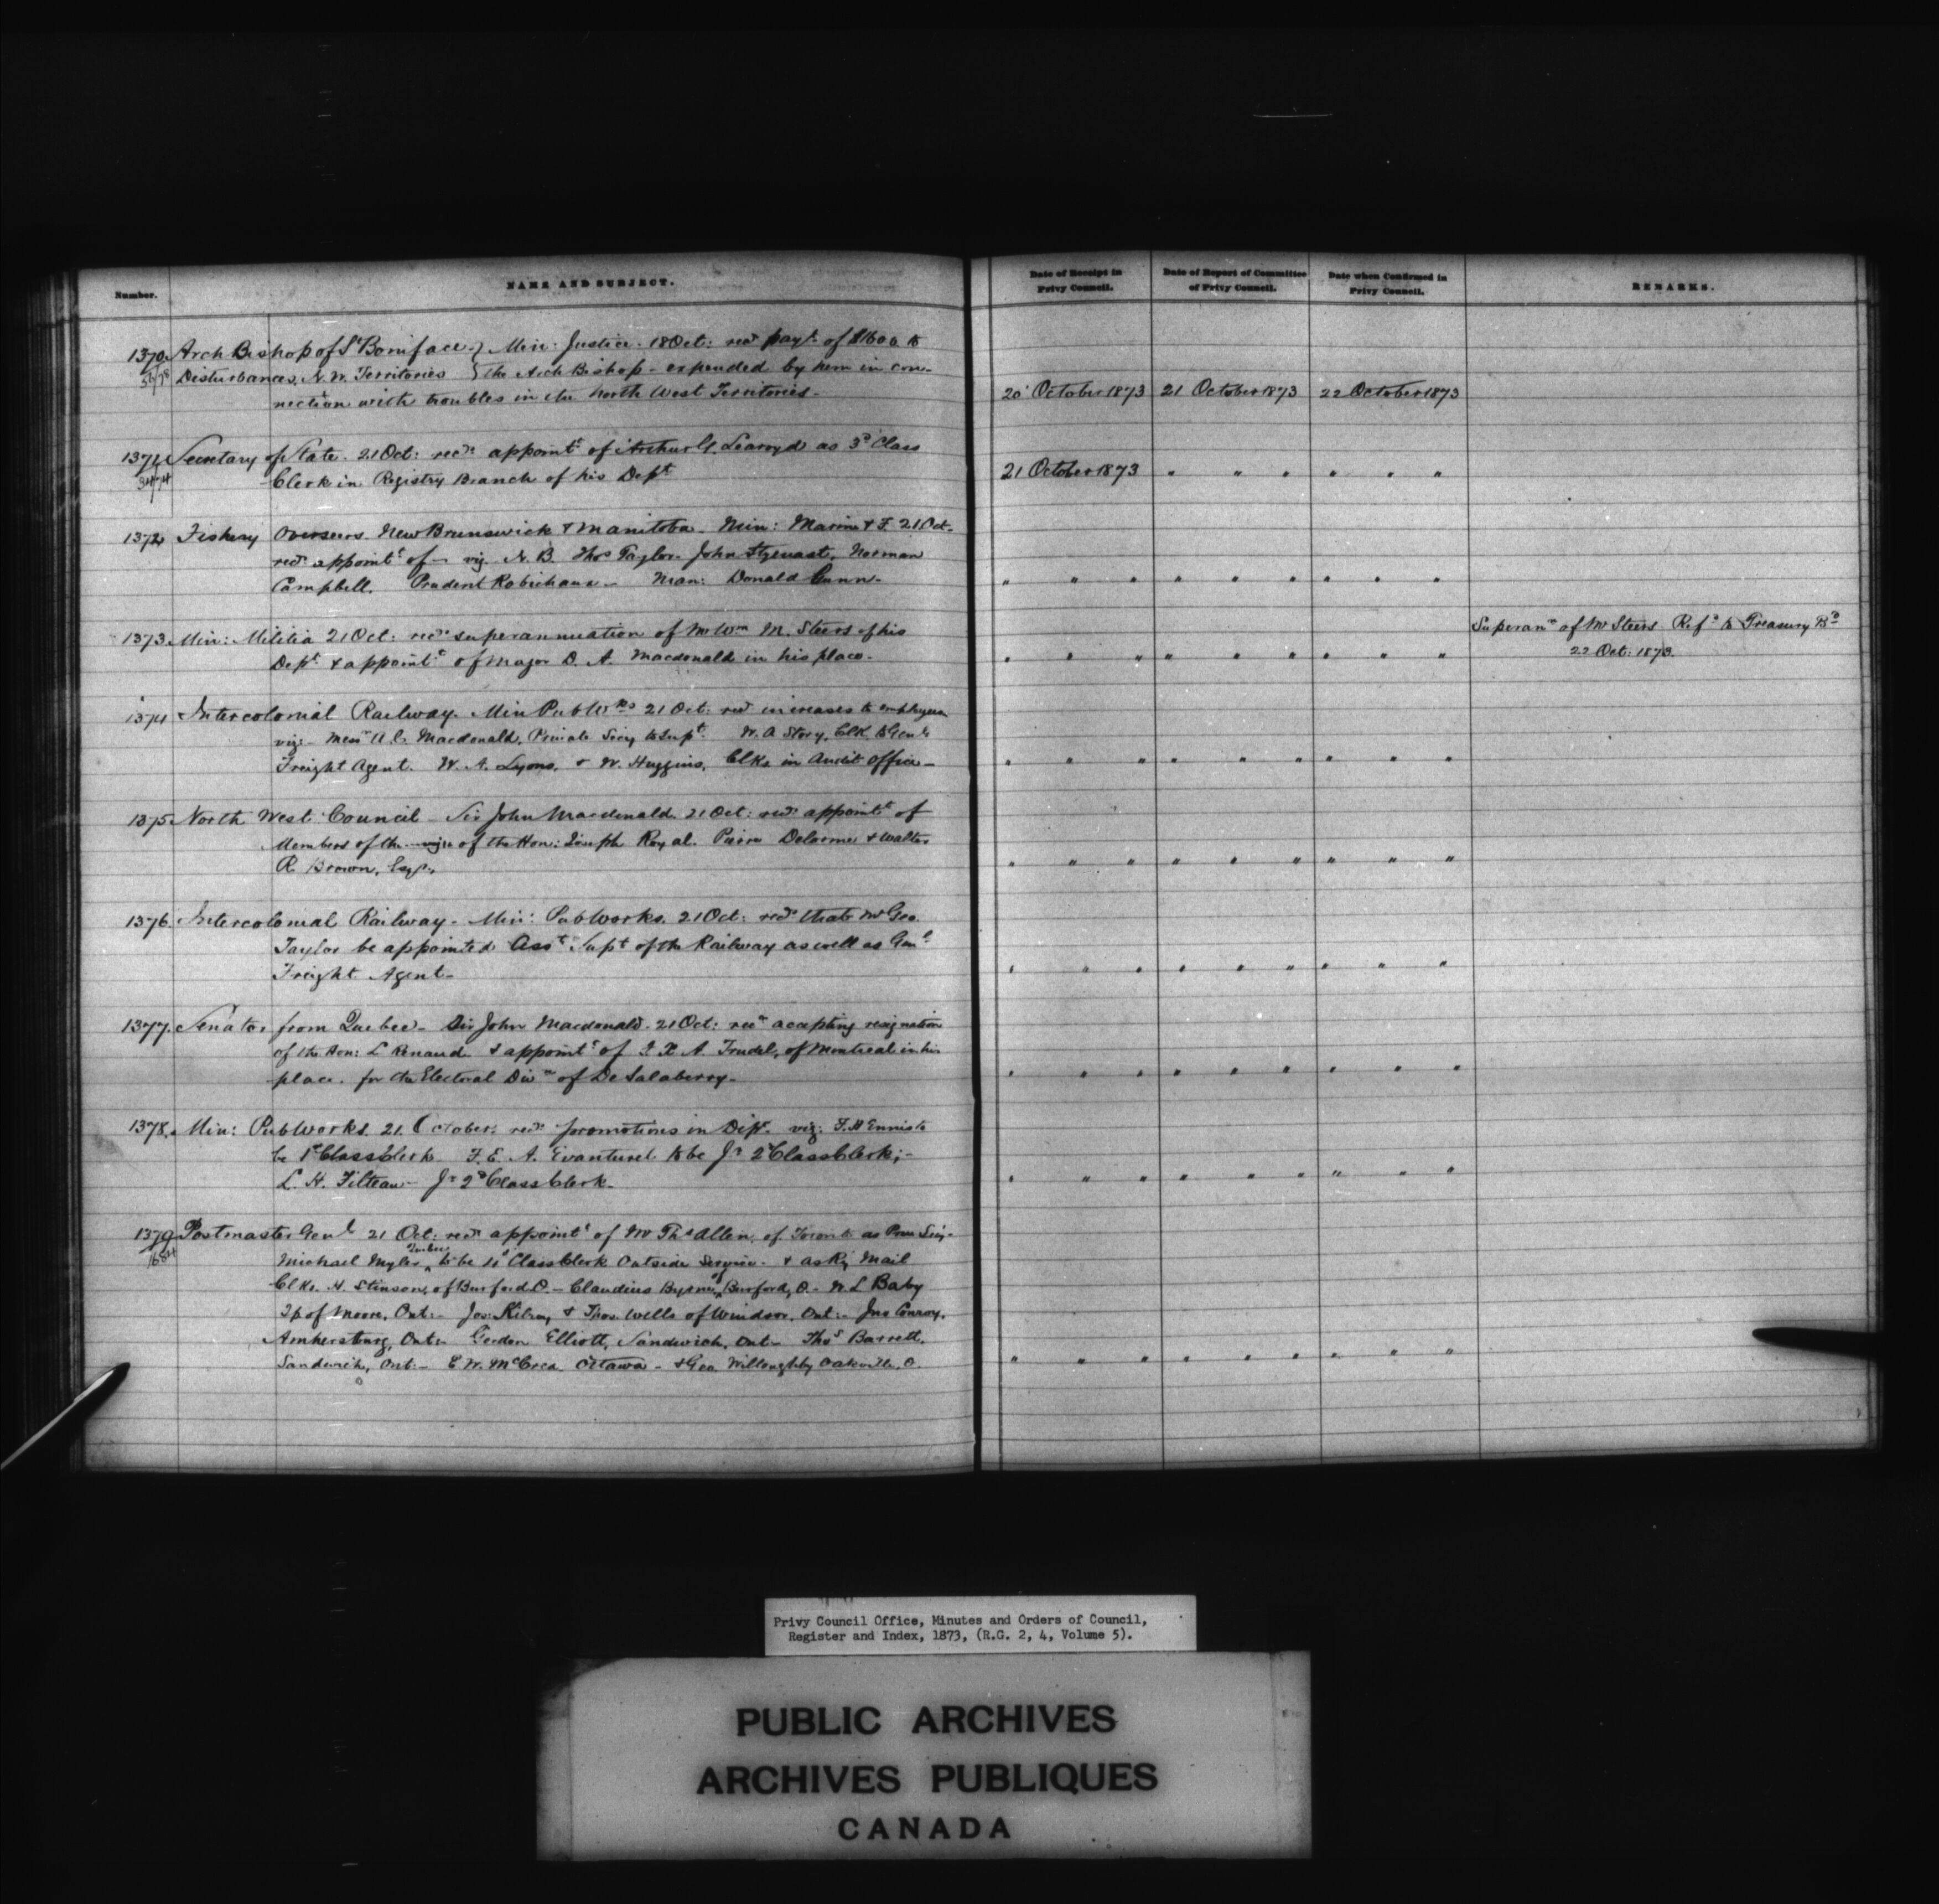 Number. NAME AND SUBJECT. Date of Receipt in Privy Council. Date of Report of Committee of Privy Council. Date when Confirmed in Privy Council. REMARKS.
1370 Arch Bishop of St Boniface } Min: Justice. 18 Oct: recd payt of $1600 to
Disturbances, N. W. Territories } the Arch Bishop - expended by him in con-
nection with troubles in the North West Territories - 20 October 1873 21 October 1873 22 October 1873
1371 Secretary of State. 21 Oct: recd appointt of Arthur G Learoyd as 3d Class
Clerk in Registry Branch of his Dept 21 October 1873 " " " " " "
1372 Fishery Overseers. New Brunswick & Manitoba - Min: Marine & F. 21 Oct.
recd appointt of - viz. N. B. Thos Taylor - John Norman
Campbell. Prudent Robichaux - Man: Donald Gunn - " " " " " " " " "
1373 Min: Militia 21 Oct: recd superannuation of Mr Wm M. Steers of his Superann of Mr Steers - Refd to Treasury Bd
Dept & appointt of Major D. A. Macdonald in his place - " " " " " " " " " 22 Oct: 1873.
1374 Intercolonial Railway. Min Pub Wks 21 Oct: recd increases to employees
viz: - Messrs A. C. Macdonald, Private Secy to Supt. W. A Story, Clk to Genl
Freight Agent. W. A. Lyons, & W. Huggins, Clks in Audit Office - " " " " " " " " "
1375 North West Council - Sir John Macdonald. 21 Oct: recd appointt of
Members of the of the Hon: Joseph Royal. Pierre Delorme & Walter
R Brown, Esqrs, " " " " " " " " "
1376. Intercolonial Railway - Min: Pub Works. 21 Oct: recd that Mr Geo.
Taylor be appointed Asst Supt of the Railway as well as Genl
Freight Agent - " " " " " " " " "
1377. Senator from Quebec - Sir John Macdonald. 21 Oct: recd accepting resignation
of the Hon: L Renaud & appointt of F. X. A. Trudel, of Montreal in his
place. for the Electoral Divn of De Salaberry - " " " " " " " " "
1378. Min: Pub Works. 21. October: recd promotions in Dept. viz: F. H Ennis to
be 1st Class Clerk F. E. A. Evanturel to be Jr 2d Class Clerk; -
L. H. Filteau - Jr 2d Class Clerk - " " " " " " " " "
1379 Postmaster Genl 21 Oct: recd appointt of Mr Ths Allen, of Toronto as
1684 Michael Myles Quebec to be Class Clerk Outside Service - & as Ry Mail
Clks. H. Stinson, of Burford O. - Claudius Byrne, of Burford, O - W. L Baby
Tp of Moore, Ont: - Jos: Kilroy & Thos. Wells of Windsor, Ont: - Jno Conroy,
Amherstburg, Ont: - Gordon Elliott, Sandwich, Ont - Thos Barrett,
Sandwich, Ont: - E. W. McCrea Ottawa - & Geo Willoughby Oakville, O. " " " " " " " " "
Privy Council Office, Minutes and Orders of Council,
Register and Index, 1873, (R.G. 2, 4, Volume 5).
PUBLIC ARCHIVES
ARCHIVES PUBLIQUES
CANADA